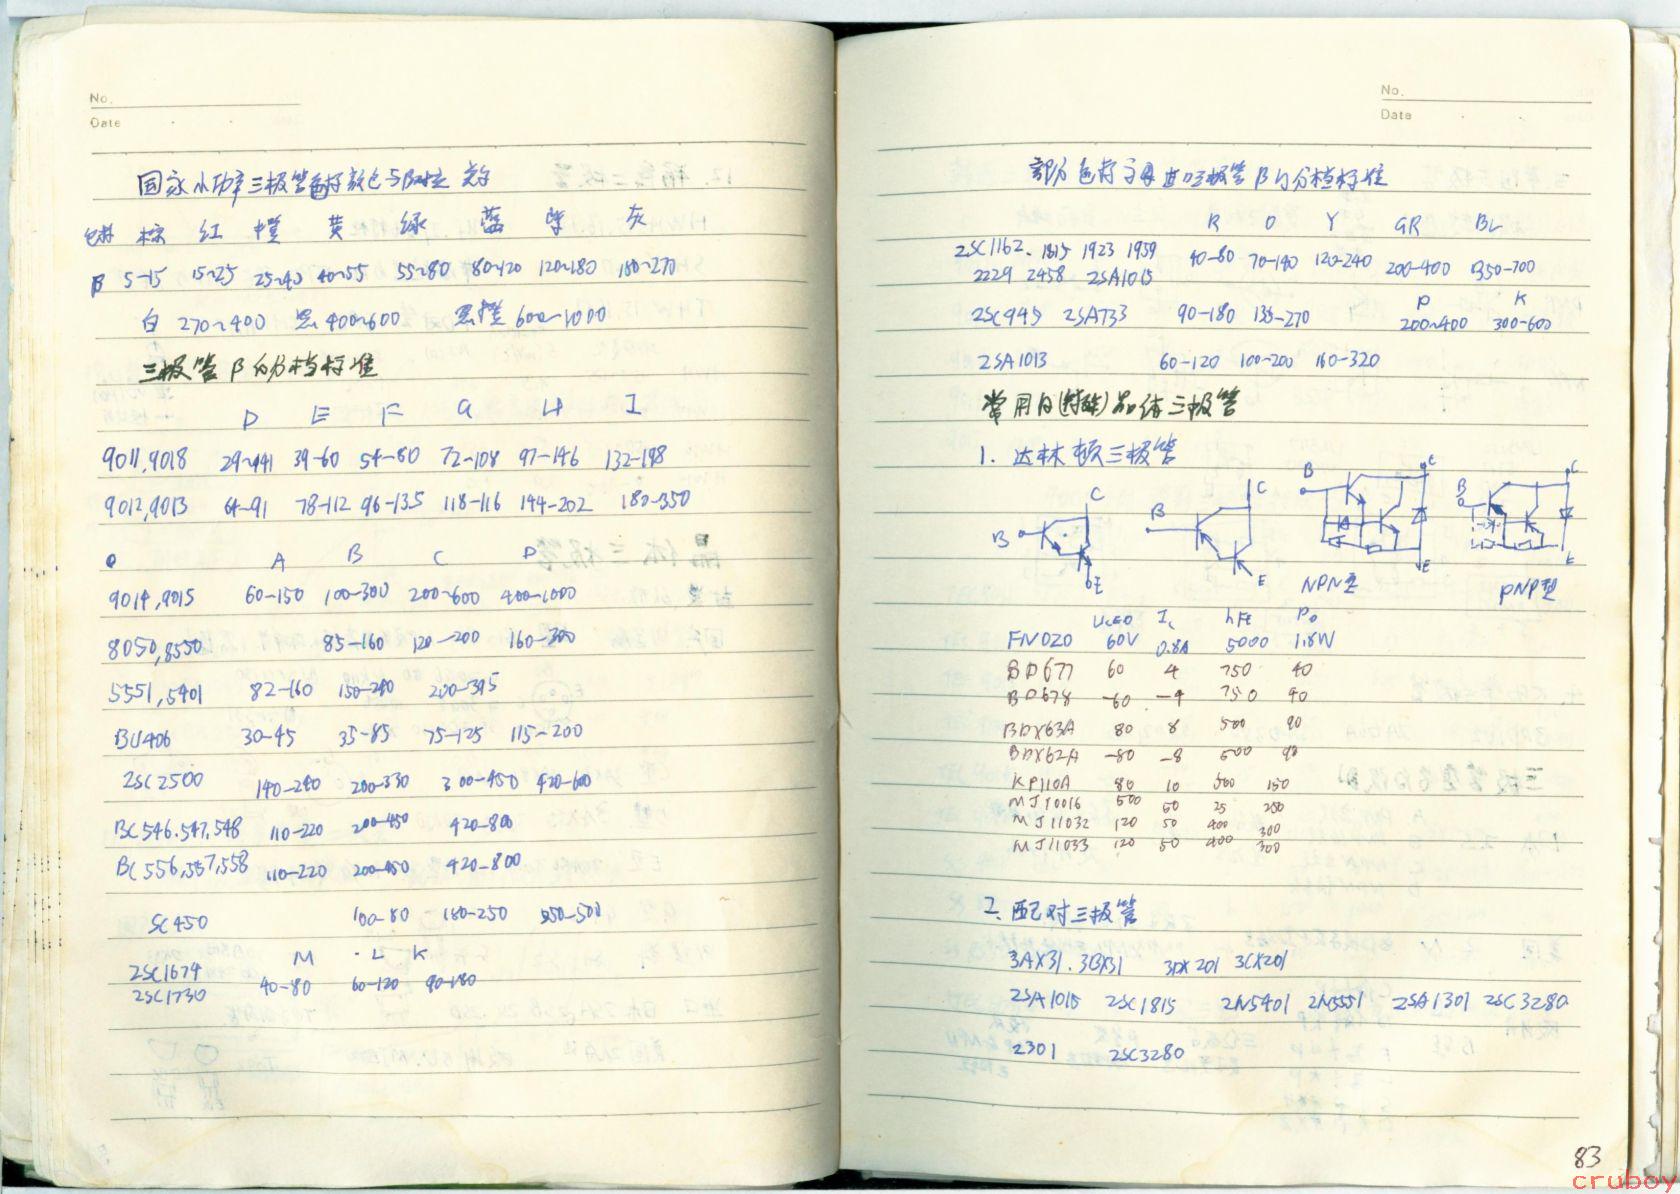 No.
Date
国家小功率三极管色标颜色与β对应关系
色标 棕 红 橙 黄 绿 蓝 紫 灰
β 5-15 15~25 25~40 40~55 55~80 80~120 120~180 180~270
白 270~400 黑 400~600 黑橙 600~1000
三极管β的分档标准
D E F G H I
9011,9018 29~441 39-60 54-80 72-108 97-146 132-198
9012,9013 64-91 78-112 96-135 118-116 144-202 180-350
A B C D
9014,9015 60-150 100-300 200-600 400-1000
8050,8550 85-160 120-200 160-300
5551,5401 82-160 150-240 200-395
BU406 30-45 35-85 75-125 115-200
2SC2500 140-240 200-330 300-450 420-600
BC546.547.548 110-220 200-450 420-800
BC556,557,558 110-220 200-450 420-800
SC450 100-80 180-250 250-500
M L K
2SC1674
2SC1730 40-80 60-120 90-180
No.
Date
部分色标字母进口三极管β的分档标准
R O Y GR BL
2SC1162. 1815 1923 1959
2229 2458 2SA1015 40-80 70-140 120-240 200-400 350-700
P K
2SC945 2SA733 90-180 135-270 200~400 300-600
2SA1013 60-120 100-200 160-320
常用的(特殊)晶体三极管
1. 达林顿三极管
B C E
B C E
B C E NPN型
B C E PNP型
UCEO IC hFE PO
FN020 60V 0.8A 5000 1.8W
BD677 60 4 750 40
BD678 -60 -4 750 40
BDX63A 80 8 500 90
BDX62A -80 -8 500 90
KP110A 80 10 500 150
MJ10016 500 50 25 250
MJ11032 120 50 400 300
MJ11033 120 50 400 300
2. 配对三极管
3AX31.3BX31 3DX201 3CX201
2SA1015 2SC1815 2N5401 2N5551 2SA1301 2SC3280
2301 2SC3280
83
cruboy